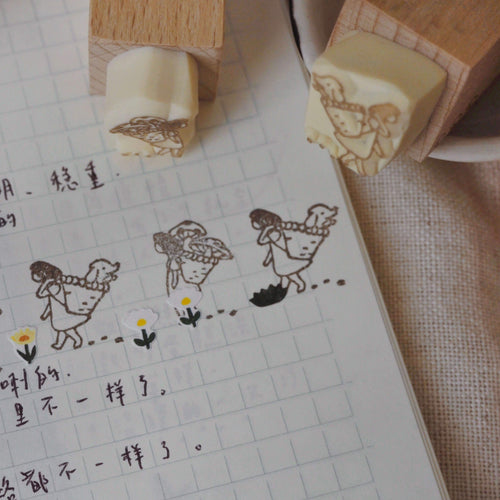 、稳重.
的
的.
里不一样了。
都不一样了。